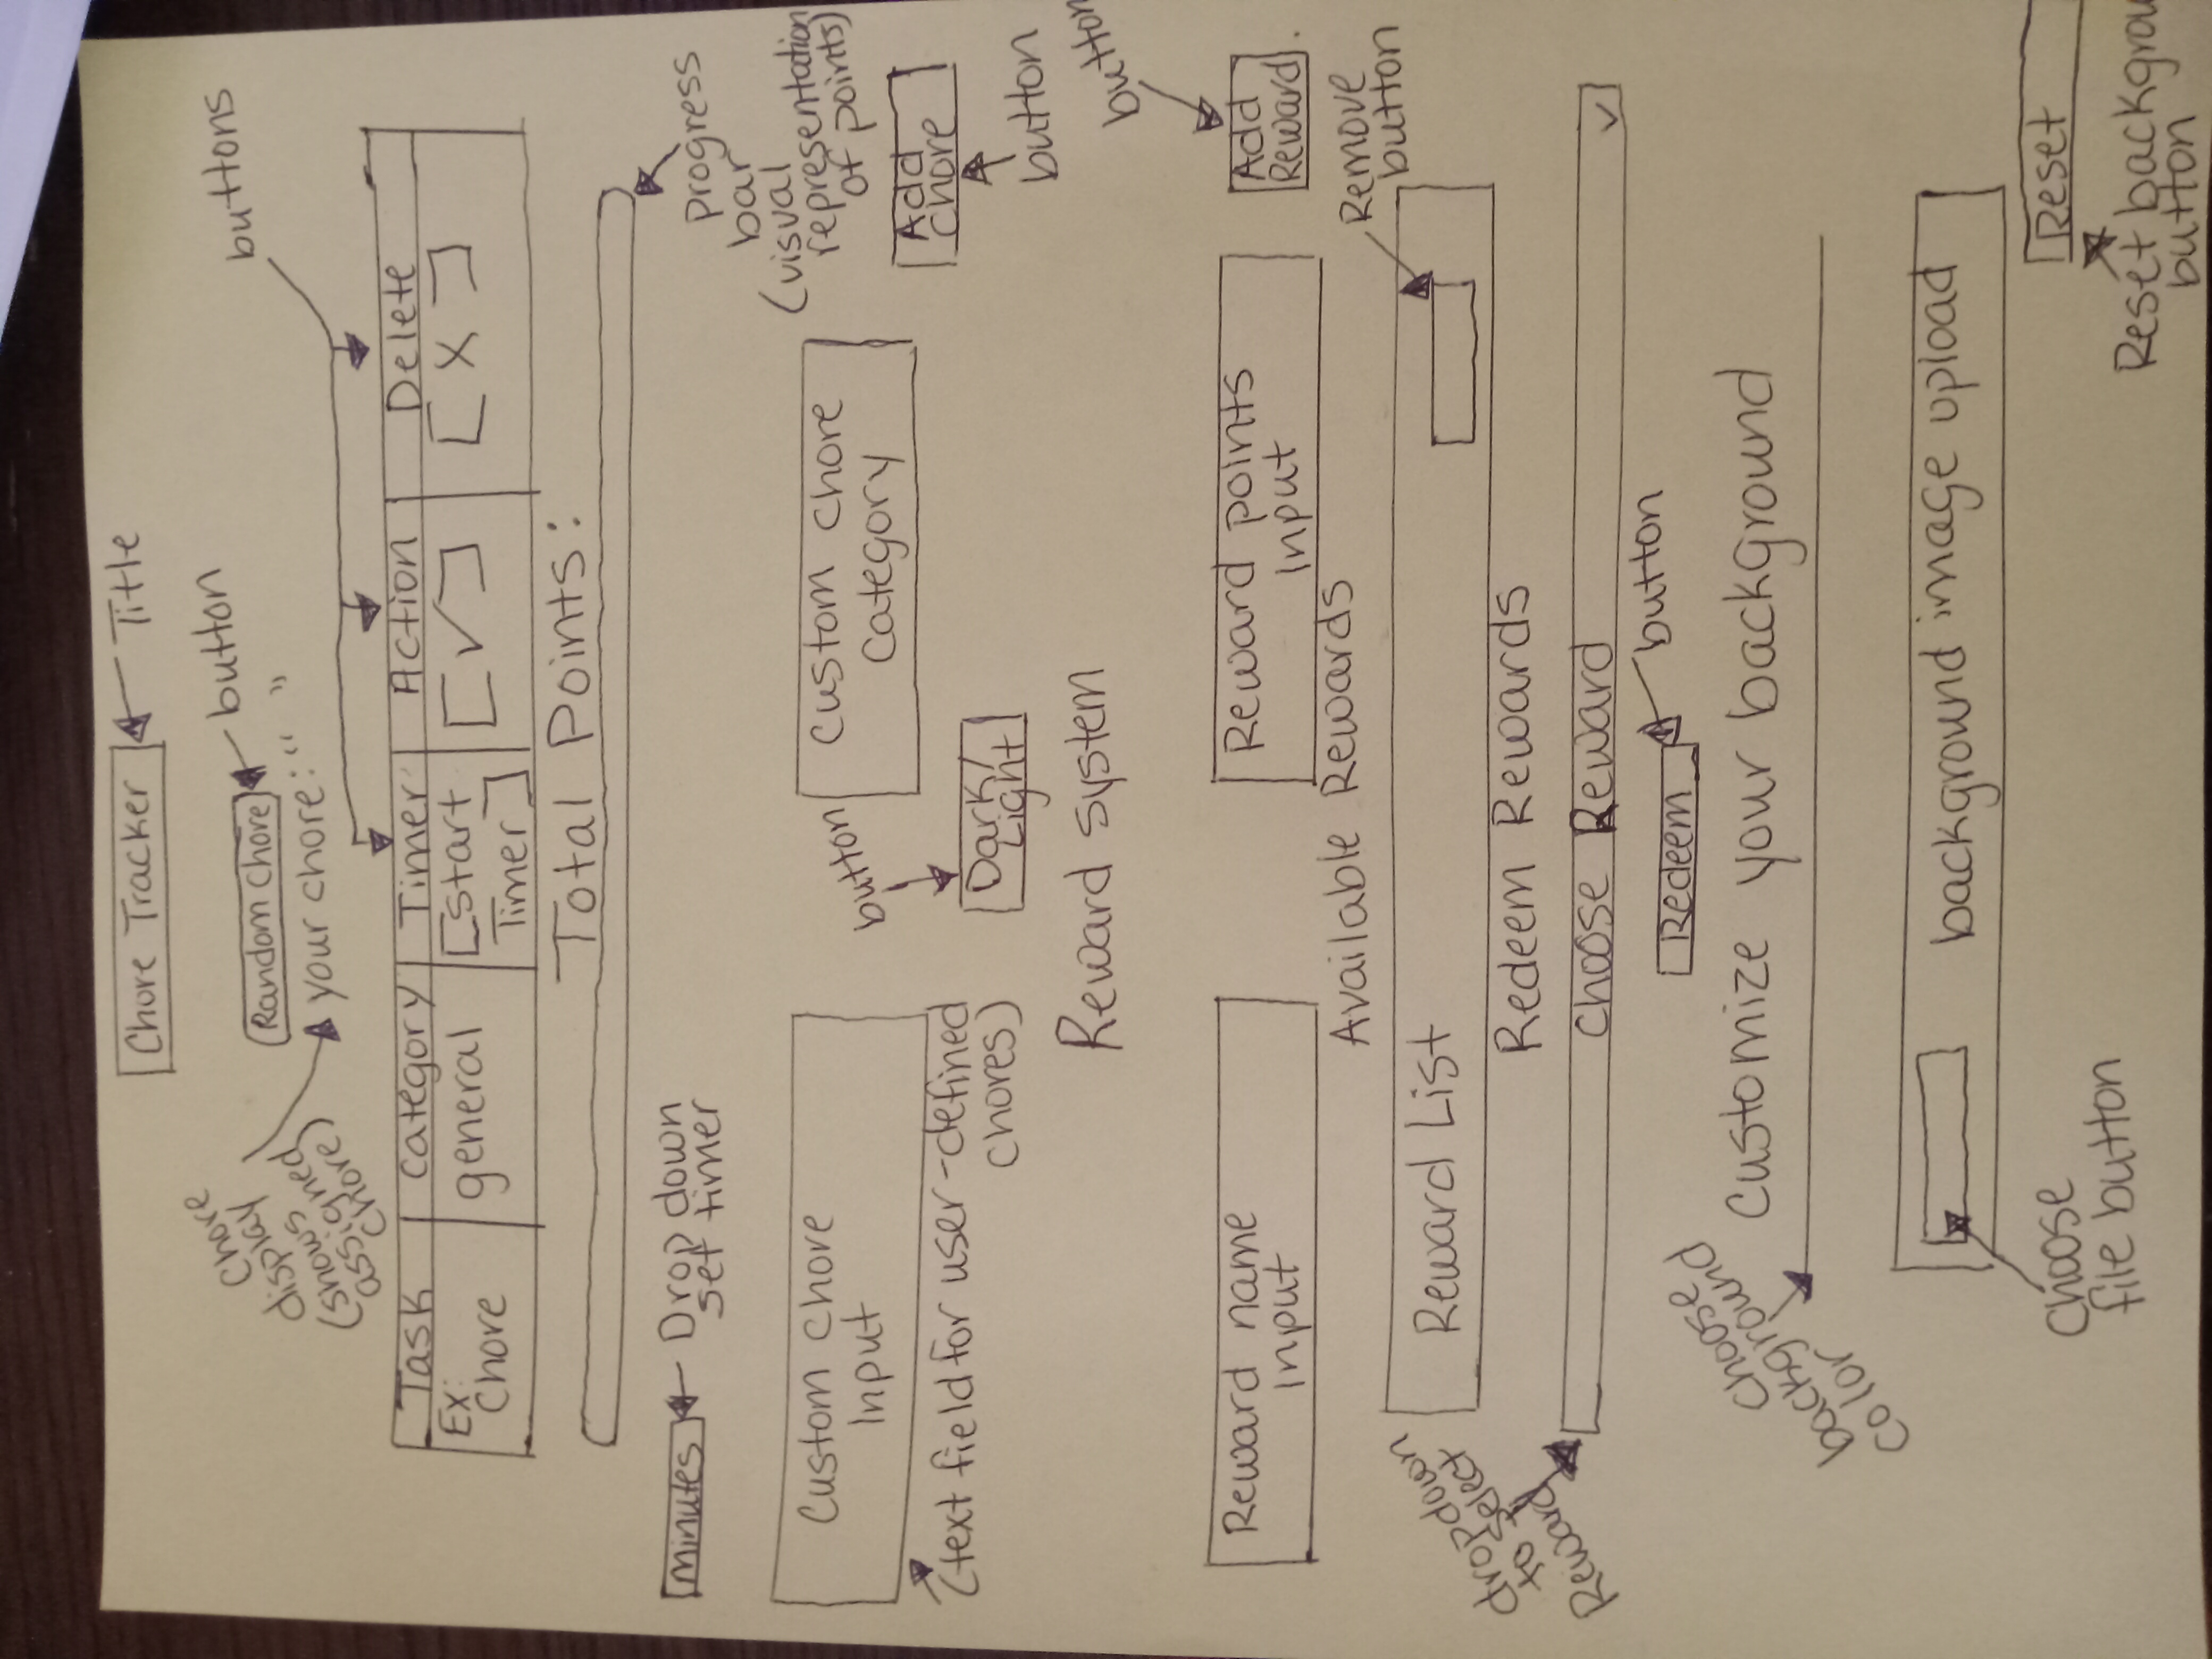 Chore Tracker
Title
Chore
display
(shows
assigned
chore)
Random Chore
button
your chore: "   "
buttons
Task
Category
Timer
Action
Delete
Ex:
Chore
general
[start
Timer]
[ ✓ ]
[ X ]
Total Points:
Progress
bar
(visual
representation
of points)
minutes
Drop down
set timer
Custom chore
Input
(text field for user-defined
chores)
button
Dark/
Light
Custom chore
Category
Add
chore
button
Reward system
Reward name
Input
Reward points
Input
button
Add
Reward
Available Rewards
Reward List
Remove
button
Redeem Rewards
dropdown
to select
Reward
Choose Reward
Redeem
button
Customize your background
Choose
background
color
background image upload
Choose
file button
Reset
Reset backgrou
button